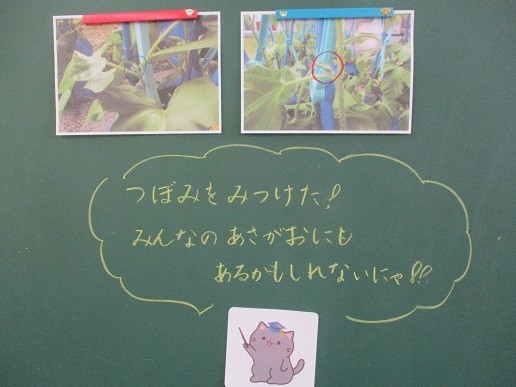 つぼみをみつけた!
みんなのあさがおにも
あるかもしれないにゃ!!